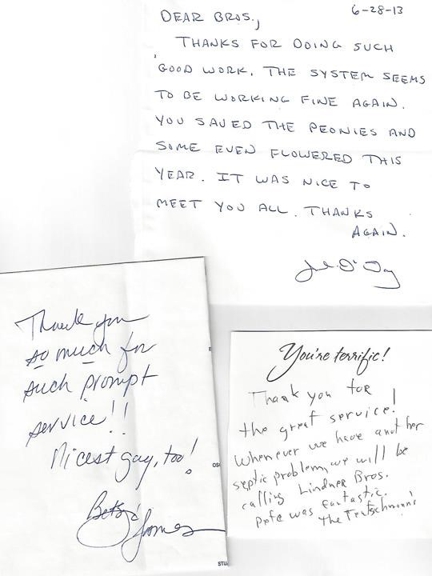 6-28-13
DEAR BROS.,
THANKS FOR DOING SUCH
GOOD WORK. THE SYSTEM SEEMS
TO BE WORKING FINE AGAIN.
YOU SAVED THE PEONIES AND
SOME EVEN FLOWERED THIS
YEAR. IT WAS NICE TO
MEET YOU ALL. THANKS
AGAIN.
Thank you
so much for
such prompt
service!!
Nicest guy, too!
Betsy
You're terrific!
Thank you for
the great service!
Whenever we have another
septic problem, we will be
calling Lindner Bros.
Pete was fantastic.
The